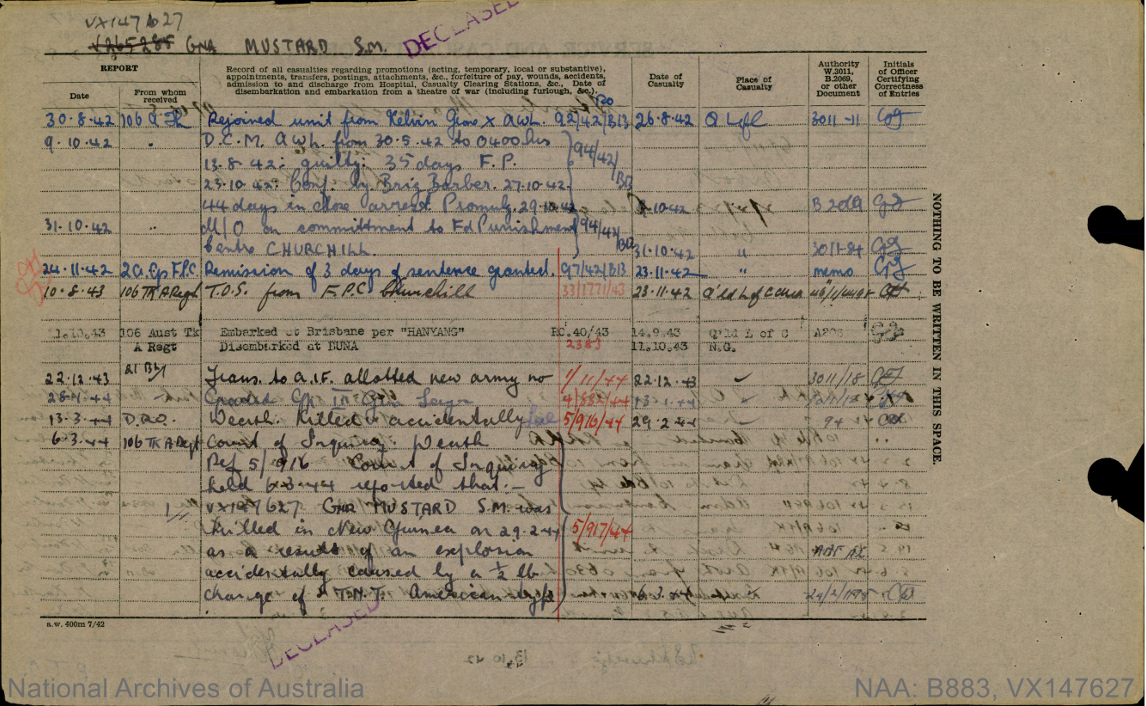 VX147627
VX265285 GNR MUSTARD S.M. DECEASED
REPORT
Record of all casualties regarding promotions (acting, temporary, local or substantive), appointments, transfers, postings, attachments, &c., forfeiture of pay, wounds, accidents, admission to and discharge from Hospital, Casualty Clearing Stations, &c., Date of disembarkation and embarkation from a theatre of war (including furlough, &c.).
Date of Casualty
Place of Casualty
Authority W.3011, B.2069, or other Document
Initials of Officer Certifying Correctness of Entries
Date
From whom received
30.8.42 Rejoined unit from Kelvin Grove X AWL. 92/42/B13 26.8.42 3011-11
9.10.42 " D.C.M. AWL. from 30.5.42 to 0400 hrs
13.8.42: guilty: 35 days F.P. 94/42/B13
23.10.42: Conf. by Brig Barber. 27.10.42.
44 days in close arrest. Promulg. 29.10.42 10.42 B 2069
31.10.42 " M/O on committment to Fd Punishment 94/42/B13
Centre CHURCHILL. 31.10.42 " 3011-84
24.11.42 2 Aus F.P.C. Remission of 3 days of sentence granted. 97/42/B13 23.11.42 " memo
10.8.43 106 TK A Regt T.O.S. from F.P.C Churchill 33/1771/43 23.11.42 Q'ld L of C area
1.10.43 106 Aust Tk A Regt Embarked at Brisbane per "HANYANG" RO.40/43 14.9.43 Q'ld L of C A206
Disembarked at BUNA 2383 11.10.43 N.G.
22.12.43 Trans. to A.I.F. allotted new army no 1/11/44 22.12.43 3011/18
28.1.44 4/882/44 13.1.44
13.3.44 D.R.O. Death: Killed accidentally 5/916/44 29.2.44
6.3.44 106 TK A Regt Court of Inquiry: Death
Ref 5/916 Court of Inquiry
held 6.3.44 reported that:-
VX147627 GNR MUSTARD S.M. was
killed in New Guinea on 29.2.44 5/917/44
as a result of an explosion
accidentally caused by a ½ lb
charge of T.N.T. American type
a.w. 400m 7/42
DECEASED
13.10.42
NOTHING TO BE WRITTEN IN THIS SPACE.
National Archives of Australia
NAA: B883, VX147627